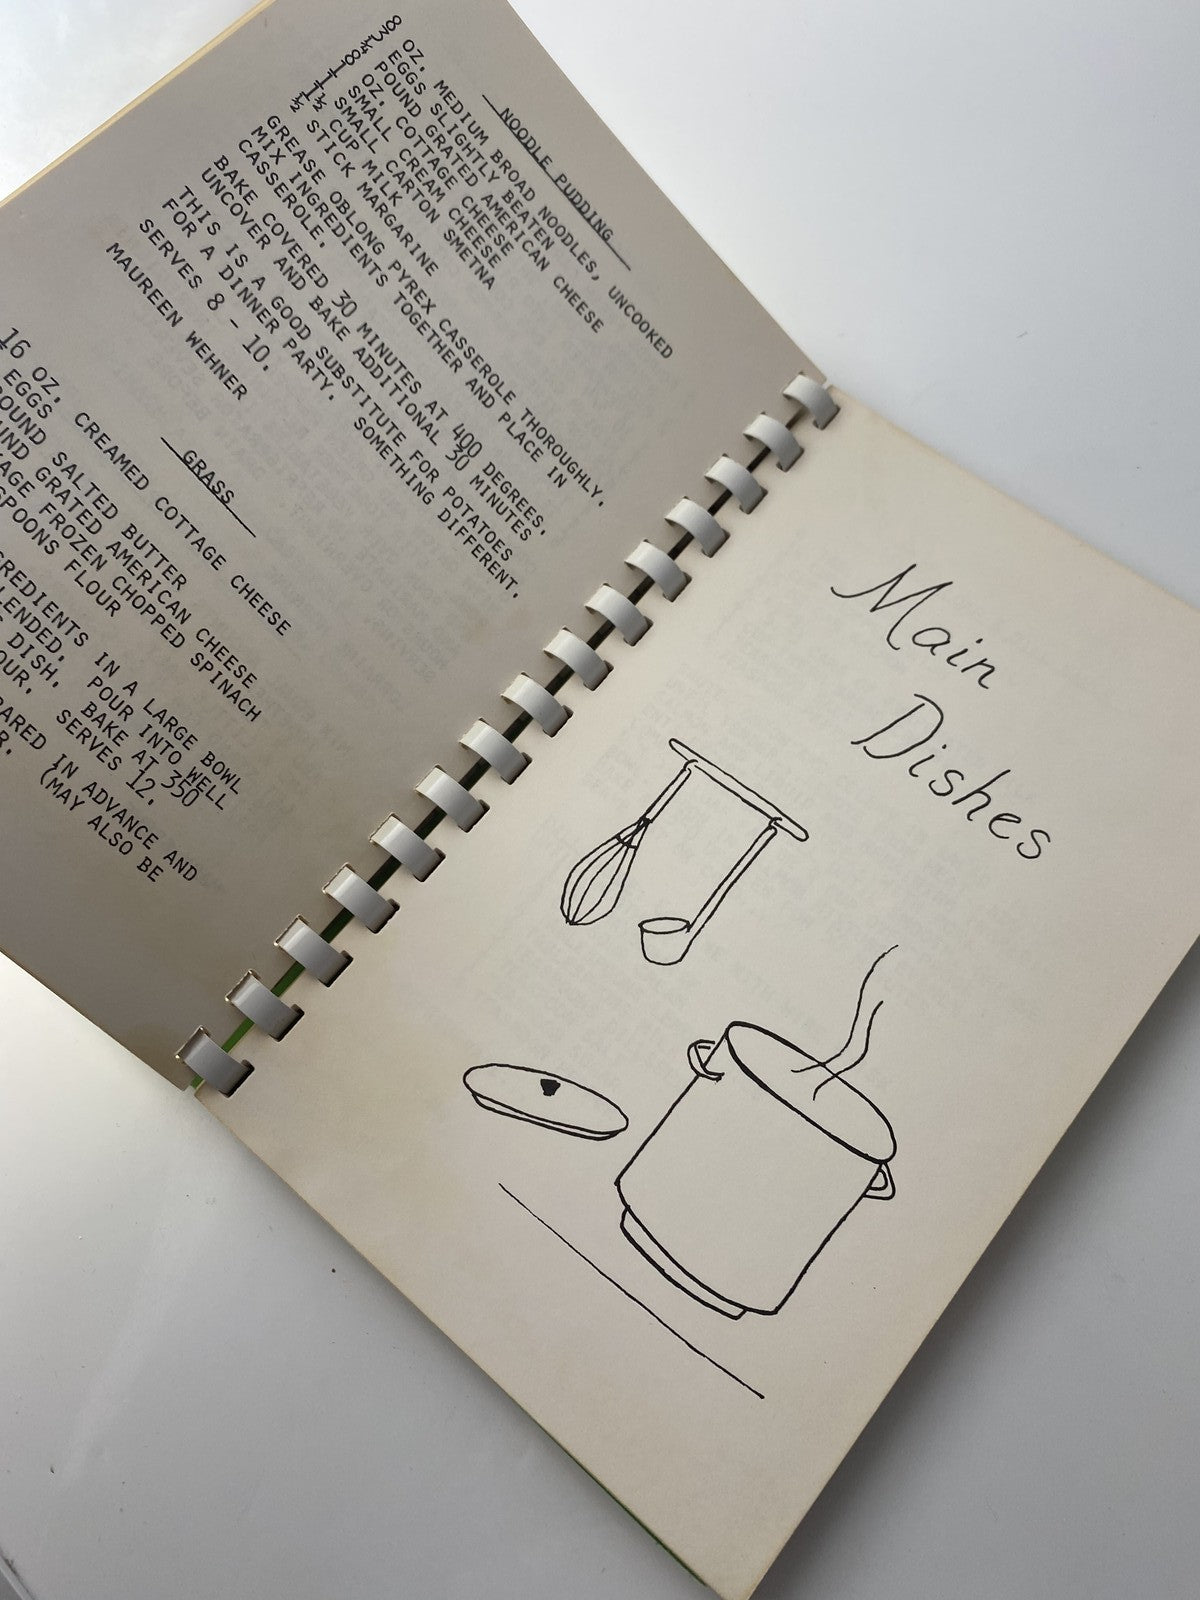 NOODLE PUDDING
8 OZ. MEDIUM BROAD NOODLES, UNCOOKED
3 EGGS SLIGHTLY BEATEN
¼ POUND GRATED AMERICAN CHEESE
8 OZ. COTTAGE CHEESE
1 SMALL CREAM CHEESE
1 SMALL CARTON SMETNA
1½ CUP MILK
½ STICK MARGARINE
GREASE OBLONG PYREX CASSEROLE THOROUGHLY.
MIX INGREDIENTS TOGETHER AND PLACE IN
CASSEROLE.
BAKE COVERED 30 MINUTES AT 400 DEGREES,
UNCOVER AND BAKE ADDITIONAL 30 MINUTES
THIS IS A GOOD SUBSTITUTE FOR POTATOES
FOR A DINNER PARTY. SOMETHING DIFFERENT.
SERVES 8 - 10.
MAUREEN WEHNER
GRASS
16 OZ. CREAMED COTTAGE CHEESE
EGGS
OUND SALTED BUTTER
UND GRATED AMERICAN CHEESE
AGE FROZEN CHOPPED SPINACH
SPOONS FLOUR
REDIENTS IN A LARGE BOWL
LENDED. POUR INTO WELL
DISH. BAKE AT 350
OUR. SERVES 12.
ARED IN ADVANCE AND
R. (MAY ALSO BE
Main
Dishes